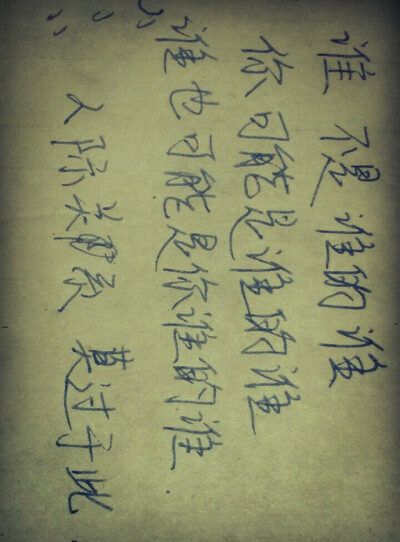 谁 不是 谁的 谁
你可能是谁的谁
谁也可能是你谁的谁.
人际关系 莫过于此